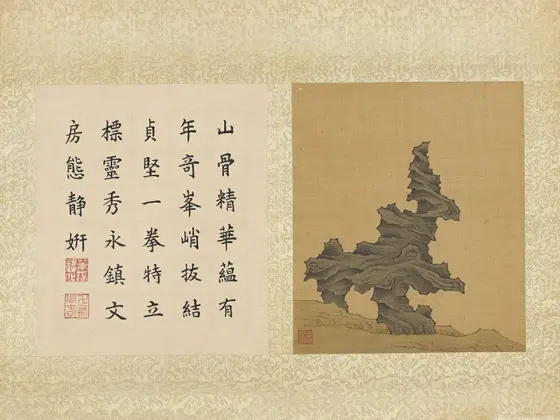 山骨精華蘊有
年奇峯峭拔結
貞堅一拳特立
標靈秀永鎮文
房態静姸